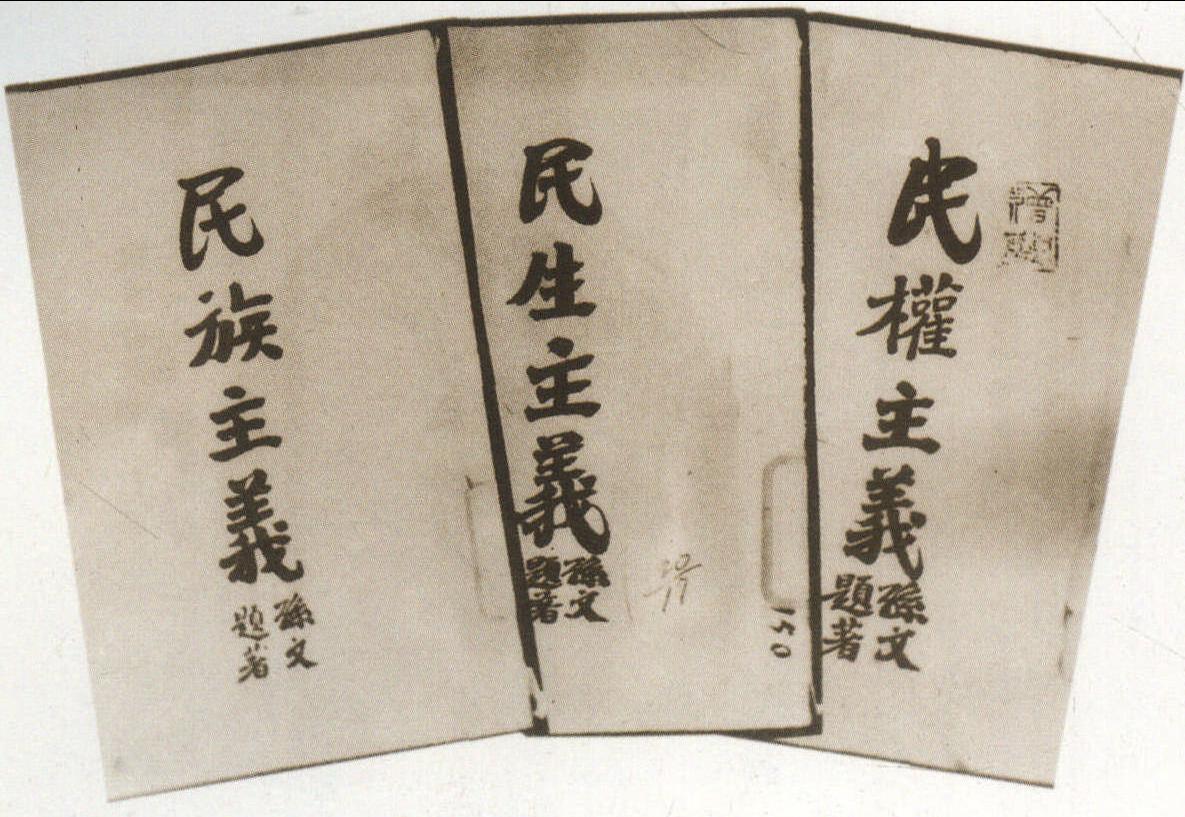 民族主義
孫文
題著
民生主義
孫文
題著
150
民權主義
孫文
題著